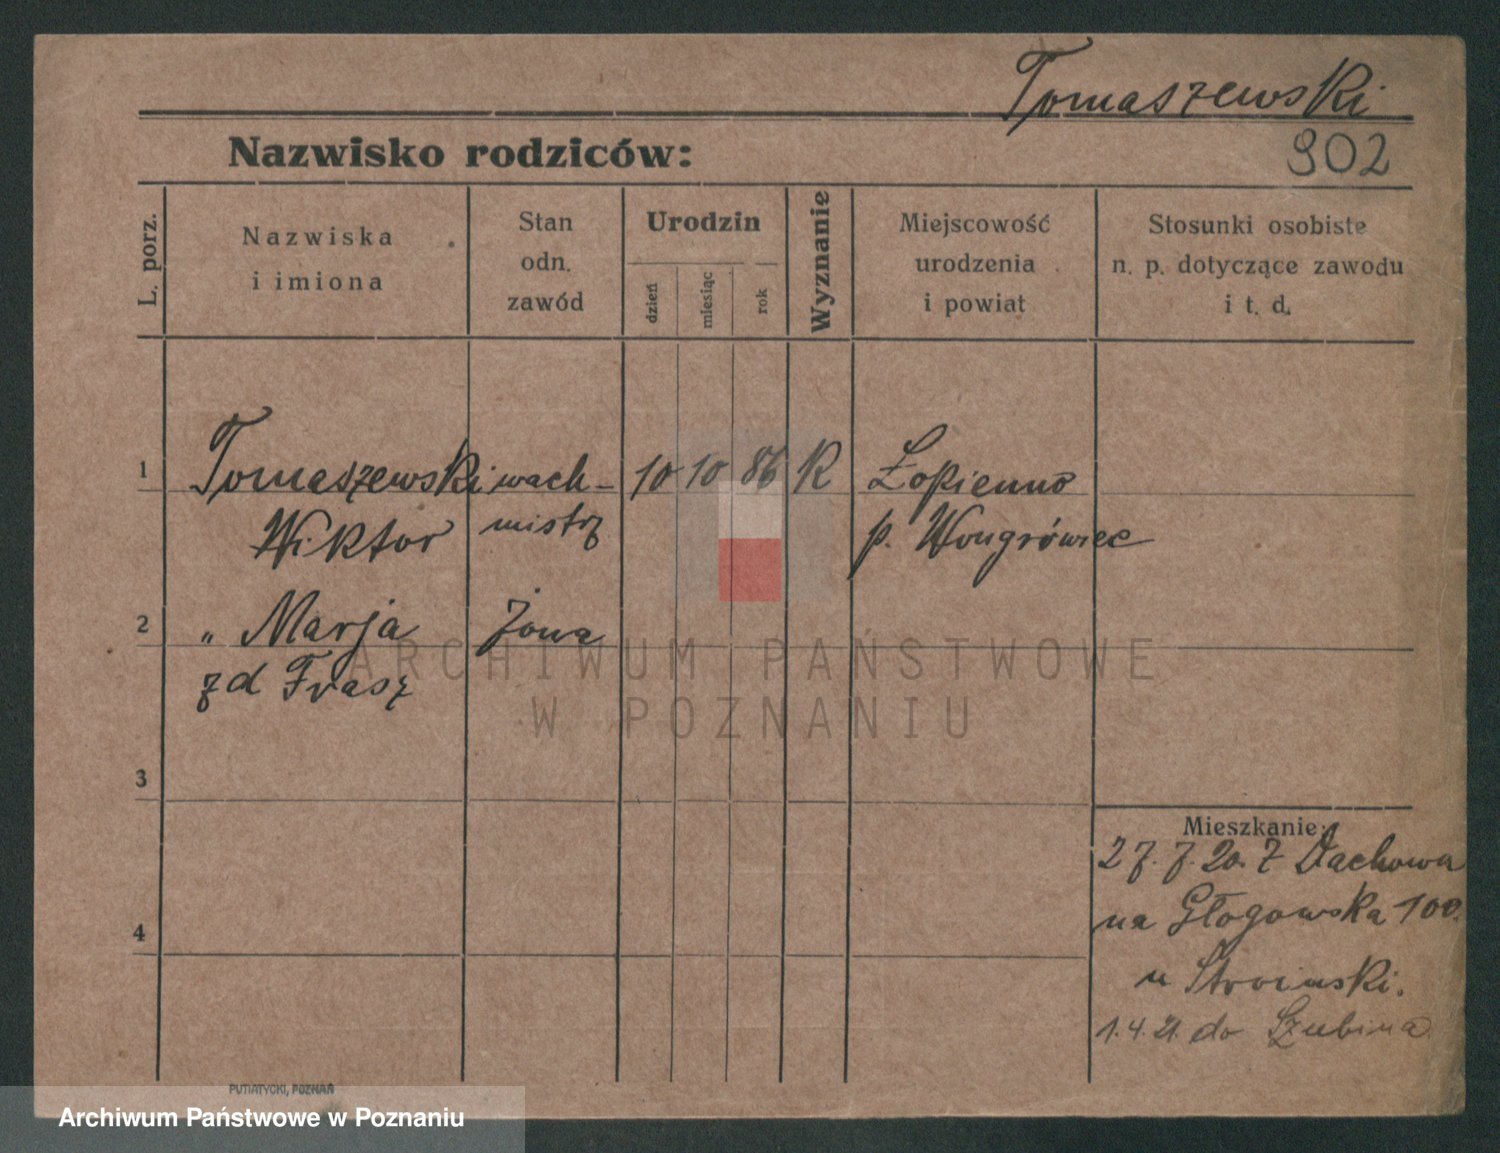 Tomaszewski
902
Nazwisko rodziców:
L. porz.
Nazwiska
i imiona
Stan
odn.
zawód
Urodzin
dzień
miesiąc
rok
Wyznanie
Miejscowość
urodzenia
i powiat
Stosunki osobiste
n. p. dotyczące zawodu
i t. d.
1 Tomaszewski wach- 10 10 86 K Łopienno
Wiktor mistrz p. Wongrówiec
2 " Marja żona
zd Frasz
3
4
Mieszkanie:
27.7.20. Z Dachowa
na Głogowska 100.
u Stroinski.
1.4.21. do Szubina
ARCHIWUM PAŃSTWOWE
W POZNANIU
PUTIATYCKI, POZNAŃ
Archiwum Państwowe w Poznaniu